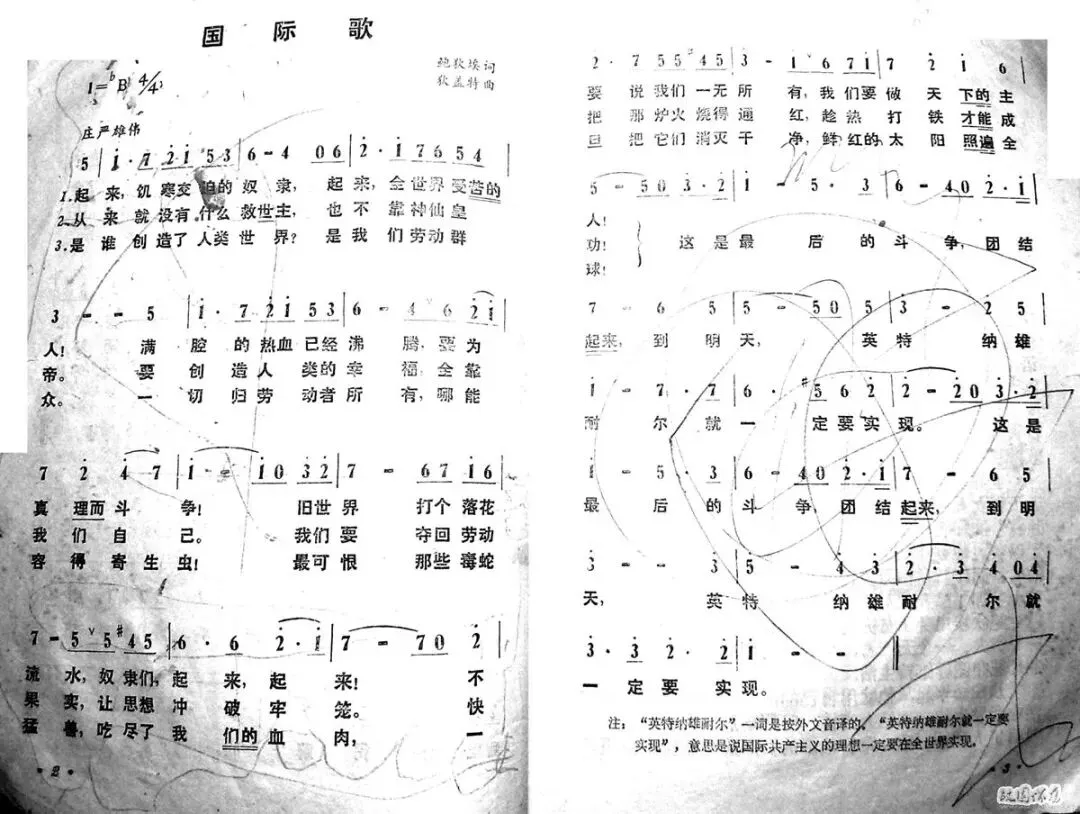 国际歌
鲍狄埃词
狄盖特曲
1=♭B 4/4
庄严雄伟
5 | 1·7 21 53 | 6 - 4 06 | 2·1 7654 |
1.起来,饥寒交迫的奴隶,起来,全世界受苦的
2.从来就没有什么救世主,也不靠神仙皇
3.是谁创造了人类世界?是我们劳动群
3 - - 5 | 1·7 21 53 | 6 - 4 6 21 |
人!满腔的热血已经沸腾,要为
帝。要创造人类的幸福,全靠
众。一切归劳动者所有,哪能
7 2 4 7 | 1 - 10 32 | 7 - 67 16 |
真理而斗争!旧世界打个落花
我们自己。我们要夺回劳动
容得寄生虫!最可恨那些毒蛇
7 - 5 5 #45 | 6·6 2·1 | 7 - 70 2 |
流水,奴隶们,起来,起来!不
果实,让思想冲破牢笼。快
猛兽,吃尽了我们的血肉,一
·2·
2·7 55 #45 | 3 - 1 671 | 7 2 1 6 |
要说我们一无所有,我们要做天下的主
把那炉火烧得通红,趁热打铁才能成
旦把它们消灭干净,鲜红的太阳照遍全
5 - 50 3·2 | 1 - 5·3 | 6 - 40 2·1 |
人!
功!这是最后的斗争,团结
球!
7 - 6 5 | 5 - 50 5 | 3 - 2 5 |
起来,到明天,英特纳雄
1 - 7·7 | 6·#5 6 2 | 2 - 20 3·2 |
耐尔就一定要实现。这是
1 - 5·3 | 6 - 40 2·1 | 7 - 6 5 |
最后的斗争,团结起来,到明
3 - - 3 | 5 - 4 3 | 2·3 4 04 |
天,英特纳雄耐尔就
3·3 2·2 | 1 - - ‖
一定要实现。
注:“英特纳雄耐尔”一词是按外文音译的。“英特纳雄耐尔就一定要
实现”,意思是说国际共产主义的理想一定要在全世界实现。
·3·